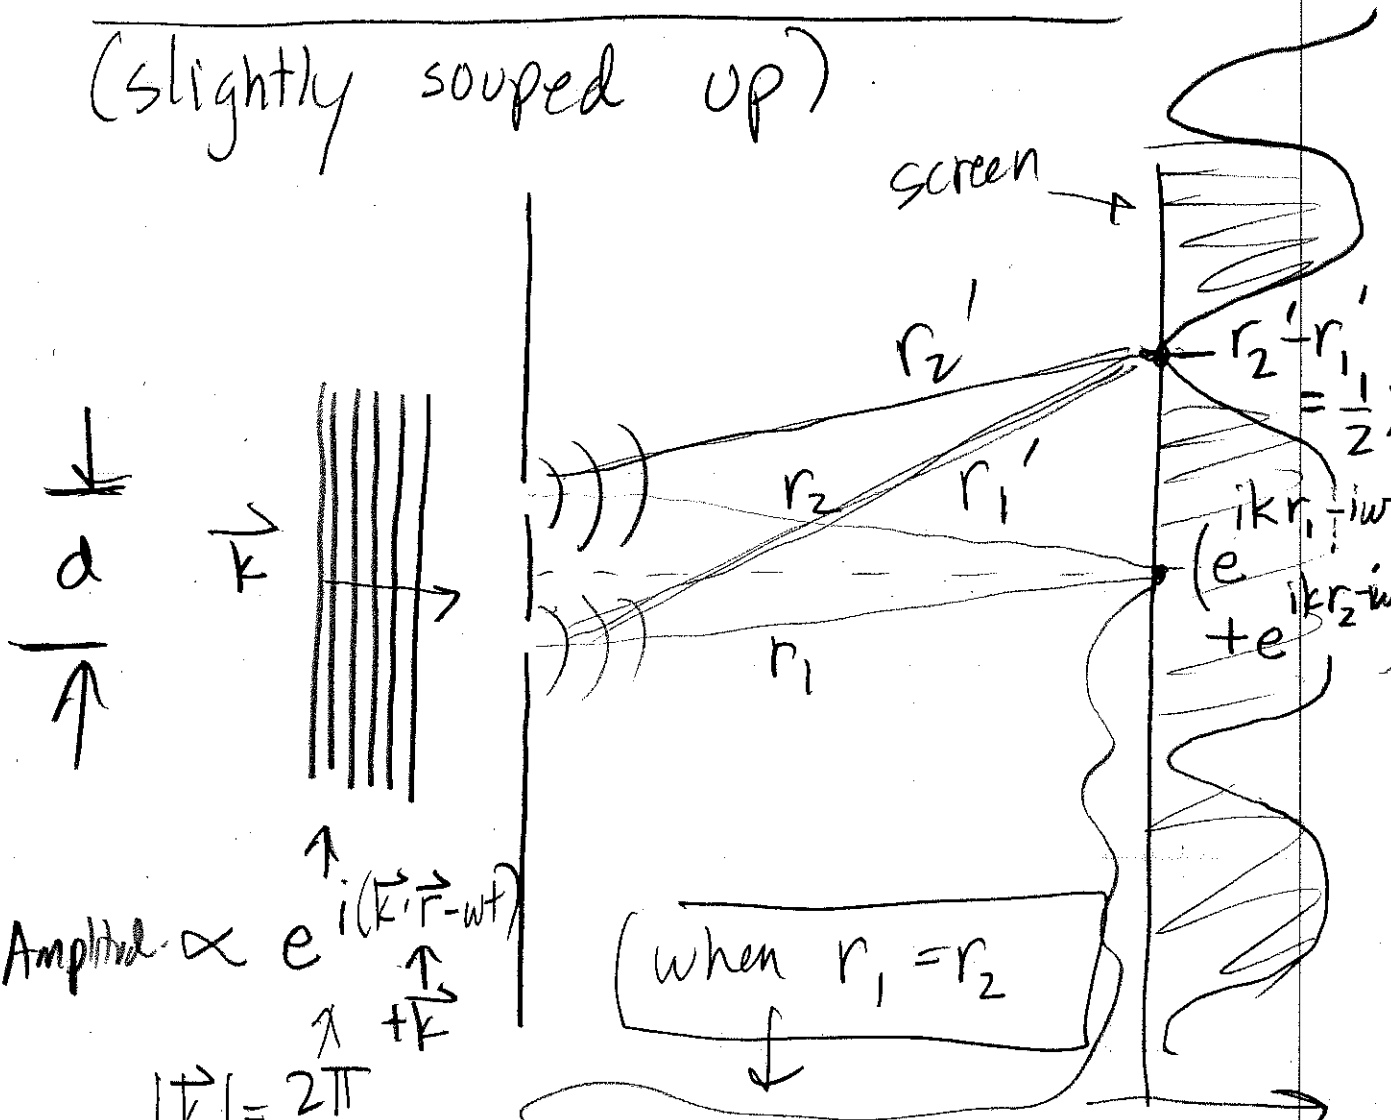 (slightly souped up)
screen
r₂'
r₂' - r₁'
= 1/2
r₂
r₁'
d
k⃗
(e^{ikr₁-iω
+ e^{ikr₂-iω
r₁
Amplitud. ∝ e^{i(k⃗·r⃗-ωt)}
+k⃗
when r₁ = r₂
|k⃗| = 2π